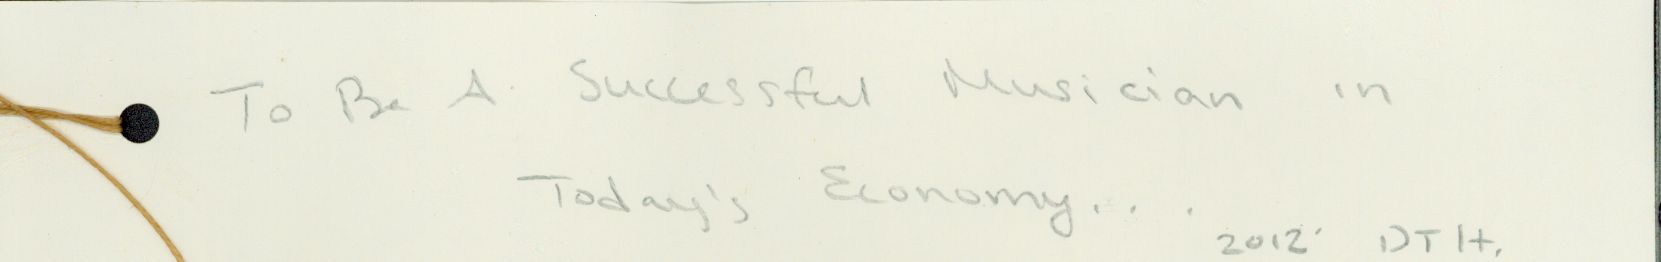 To Be A Successful Musician in
Today's Economy...
2012 DTH.